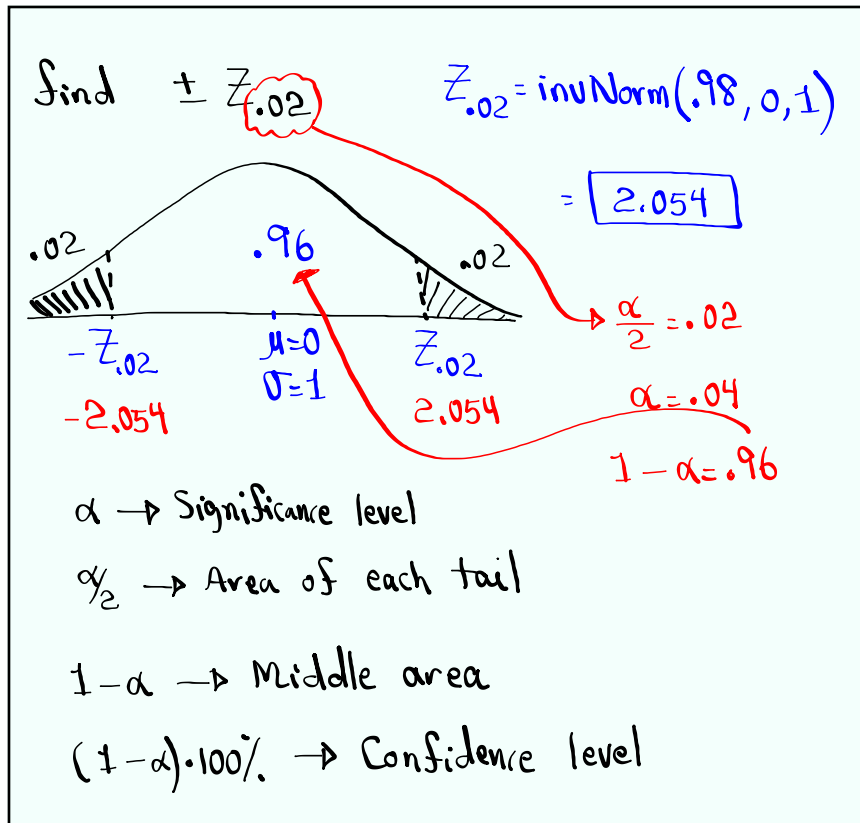 find ± Z.02
Z.02 = invNorm(.98, 0, 1)
= 2.054
.02
.96
.02
-Z.02
μ=0
σ=1
Z.02
-2.054
2.054
α/2 = .02
α = .04
1 - α = .96
α → Significance level
α/2 → Area of each tail
1-α → Middle area
(1-α)·100% → Confidence level